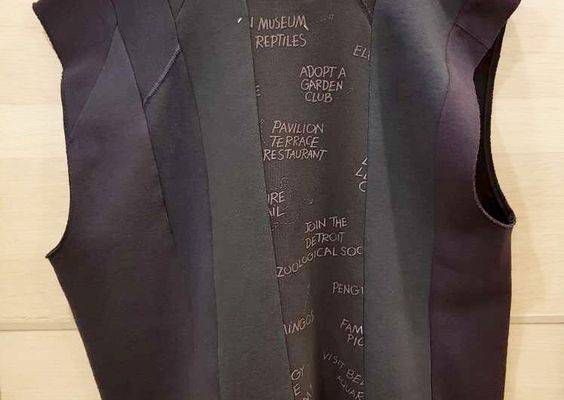 MUSEUM
REPTILES
EL
ADOPT A
GARDEN
CLUB
E
PAVILION
TERRACE
RESTAURANT
URE
AIL
JOIN THE
DETROIT
ZOOLOGICAL SOC
PENG
INGOS
FAM
PIC
VISIT BEL
AQUAR
E